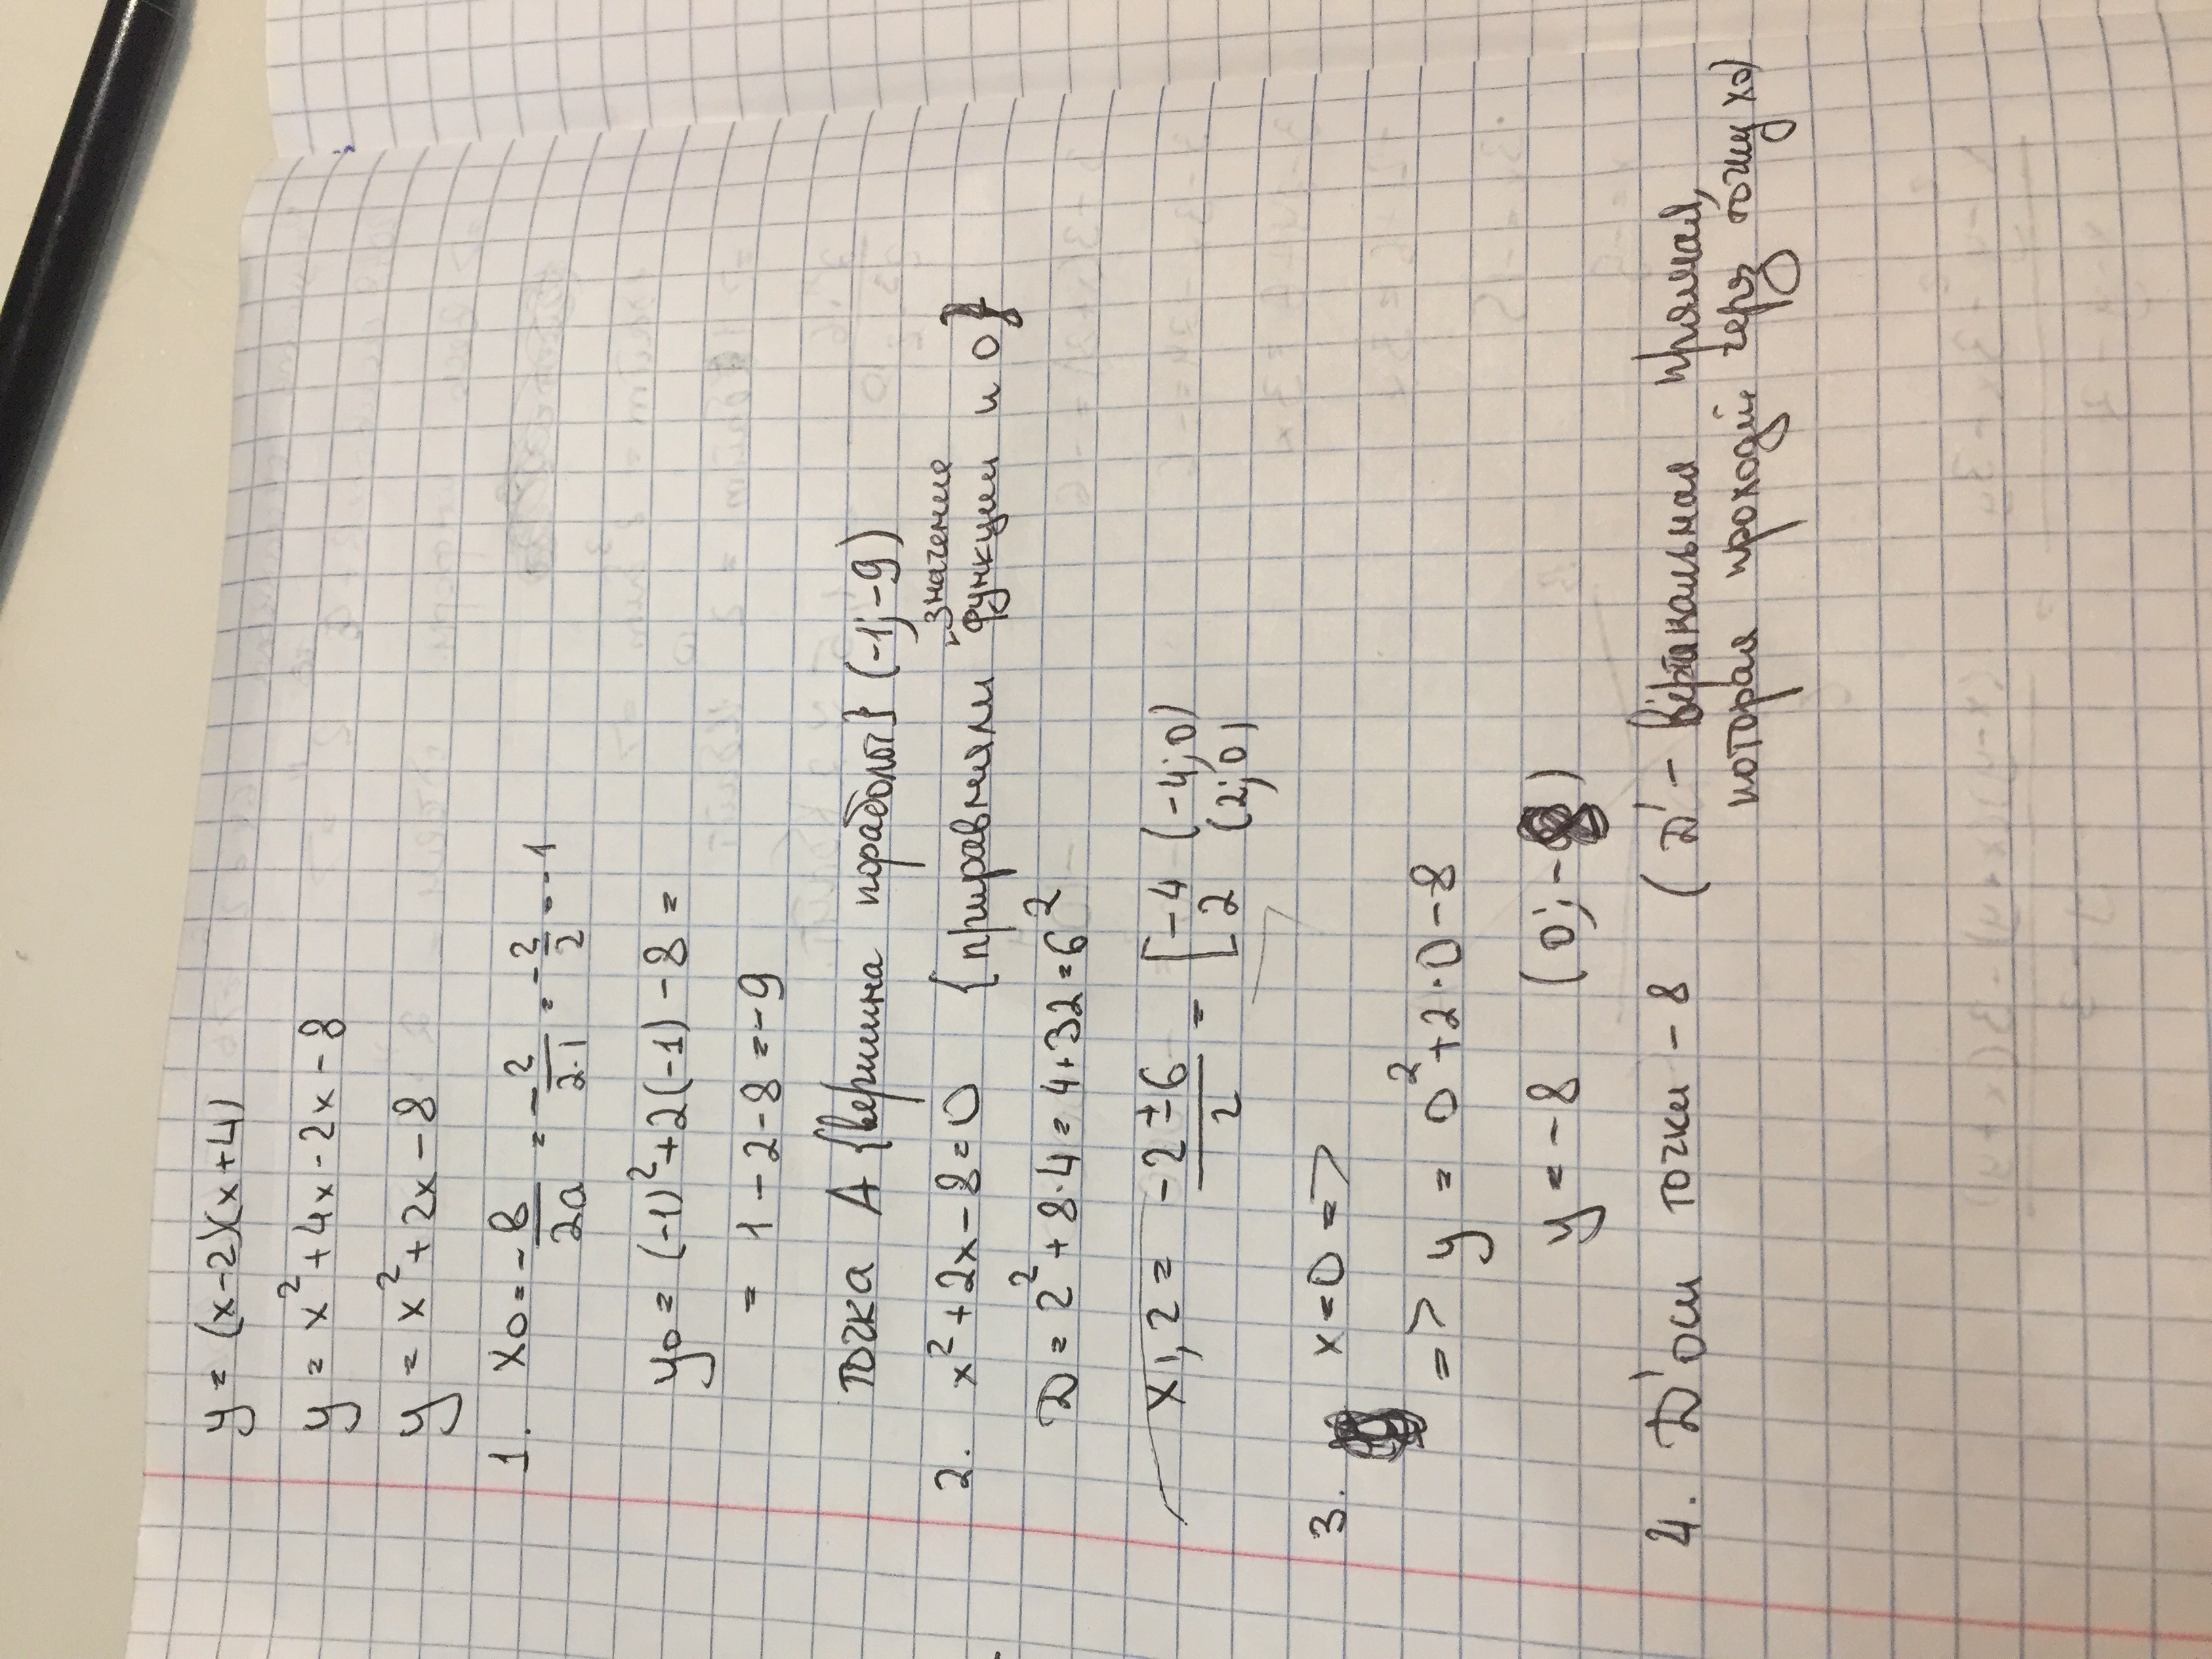 y = (x-2)(x+4)
y = x² + 4x - 2x - 8
y = x² + 2x - 8
1. x0 = -в/2a = -2/2·1 = -2/2 = -1
y0 = (-1)² + 2(-1) - 8 =
= 1 - 2 - 8 = -9
точка А {вершина пораболы} (-1; -9)
2. x² + 2x - 8 = 0 {приравняли значение функции и 0}
D = 2² + 8·4 = 4 + 32 = 6²
x1,2 = -2±6/2 = [-4 (-4; 0)
[2 (2; 0)
3. x = 0 =>
=> y = 0² + 2·0 - 8
y = -8 (0; -8)
4. D' оси точки - 8 (D' - вертикальная прямая,
которая проходит через точку x0)